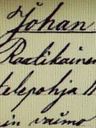 Johan
Raatikainen
telepohja
in vaimo